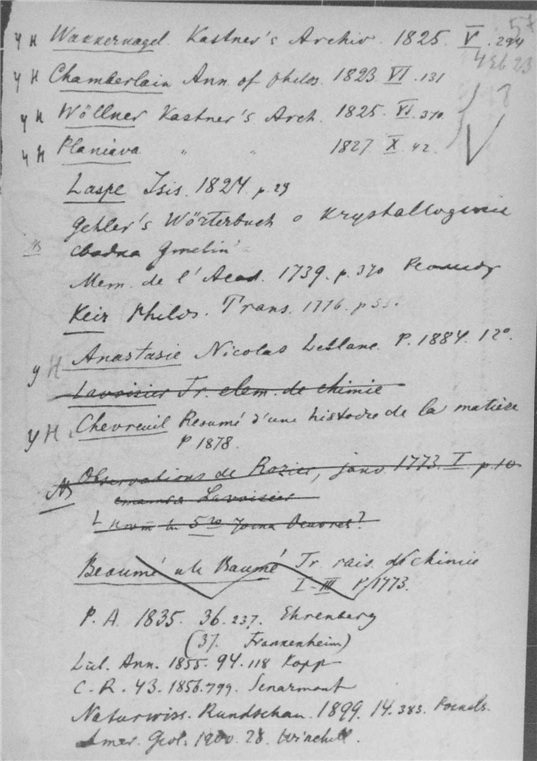 57
У Н Wakkernagel. Kastner's Archiv. 1825. V. 294
У Н Chamberlain Ann of philos. 1823 VI. 131
У Н Wöllner Kastner's Arch. 1825. VI. 370.
У Н Planiava " " 1827 X. 42.
Laspe Isis. 1824 p. 29
Gehler's Wörterbuch о Krystallogenie
Gmelin
Mem. de l'Acad. 1739. p. 370
Keir Philos. Trans. 1776. p.
У Н Anastasie Nicolas Leblanc. P. 1884. 12°.
Lavoisier Tr. elem. de chimie
У Н. Chevreuil Resumé d'une histoire de la matière
P 1878.
Observations de Rozier, janv 1773. I p. 10
Lavoisier
5 Oeuvres?
Beaumé или Baumé Tr. rais. de chimie
I-III P. 1773.
P. A. 1835. 36. 237. Ehrenberg
(37. Frankenheim)
Lieb. Ann. 1855. 94. 118 Kopp
C. R. 43. 1856. 799. Senarmont
Naturwiss. Rundschau. 1899. 14. 383.
Amer. Geol. 1900. 28. Winchell.